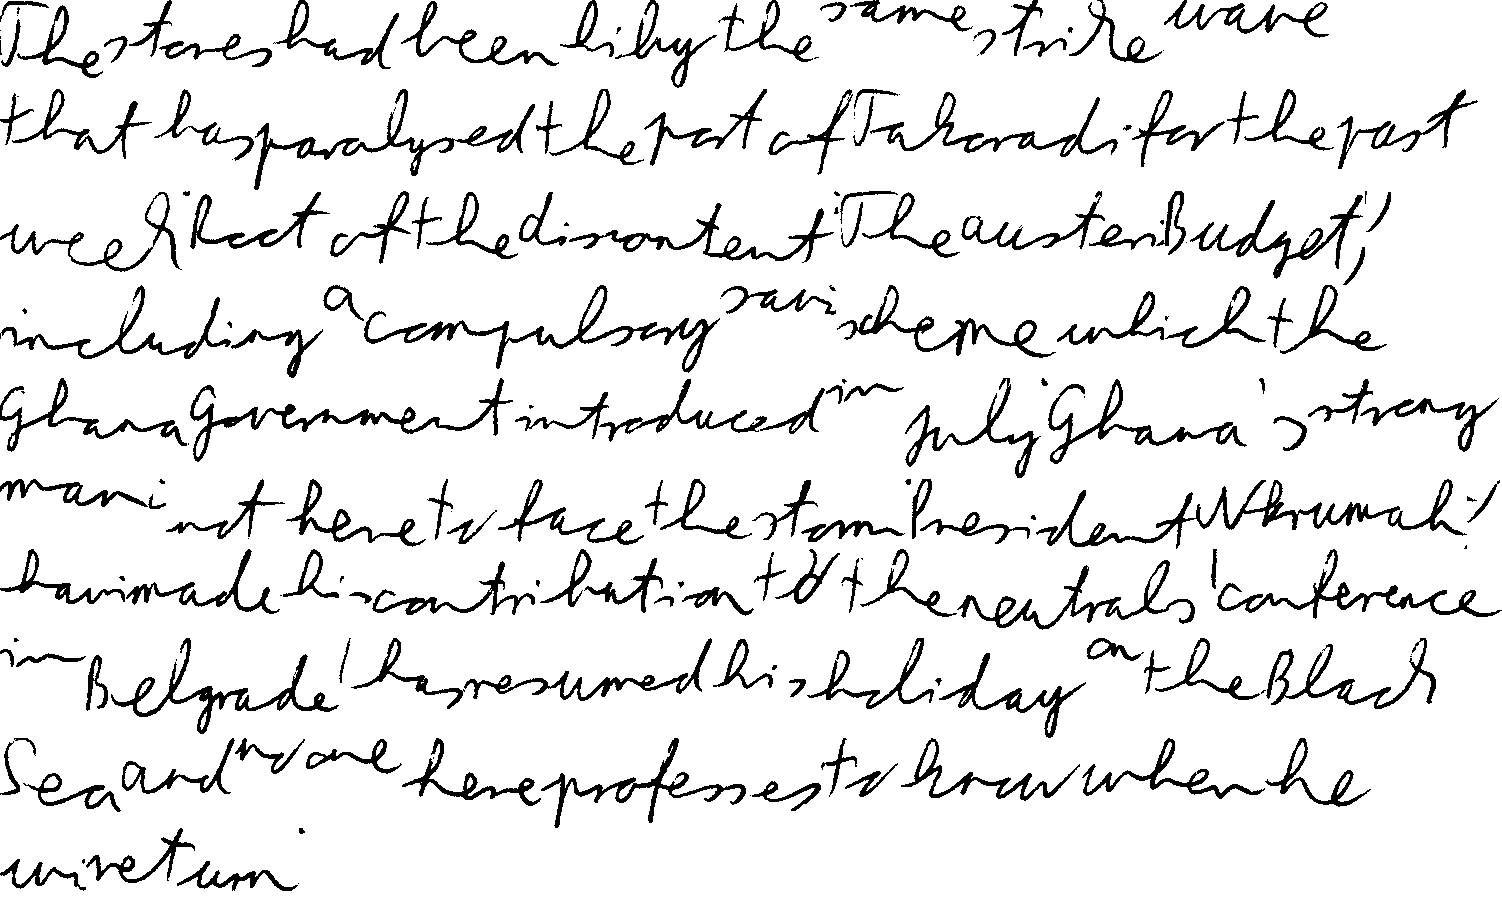 The stores had been hi by the same strike wave
that has paralysed the port of Takoradi for the past
week. Root of the discontent: The austeri Budget,
including a compulsory savi scheme which the
Ghana Government introduced in July. Ghana's strong
man i not here to face the storm. President Nkrumah,
havi made his contribution to the neutrals' conference
in Belgrade, has resumed his holiday on the Black
Sea and no one here professes to know when he
wi return.